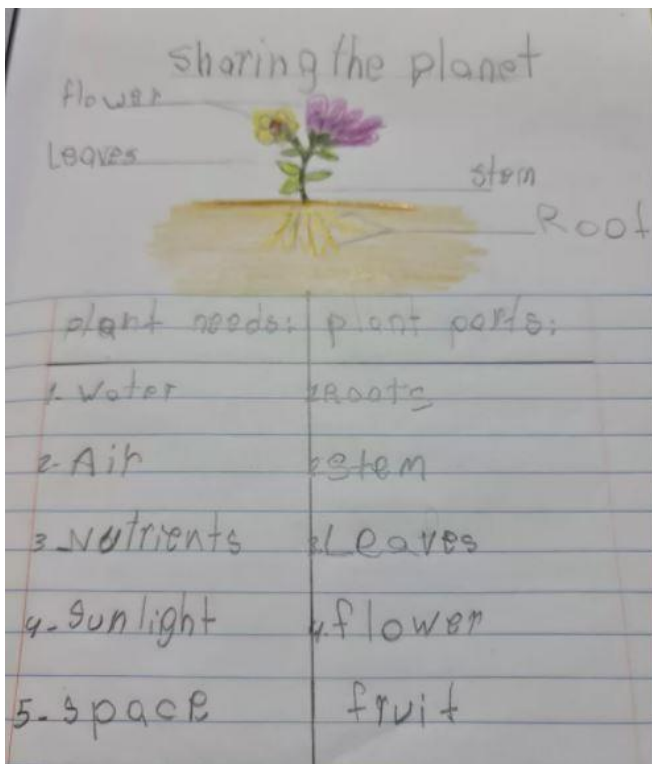 sharing the planet
flower
Leaves
stem
Root
plant needs: plant parts:
1- Water 1. Roots
2- Air 2. stem
3. Nutrients 3. Leaves
4- Sunlight 4. flower
5- space fruit